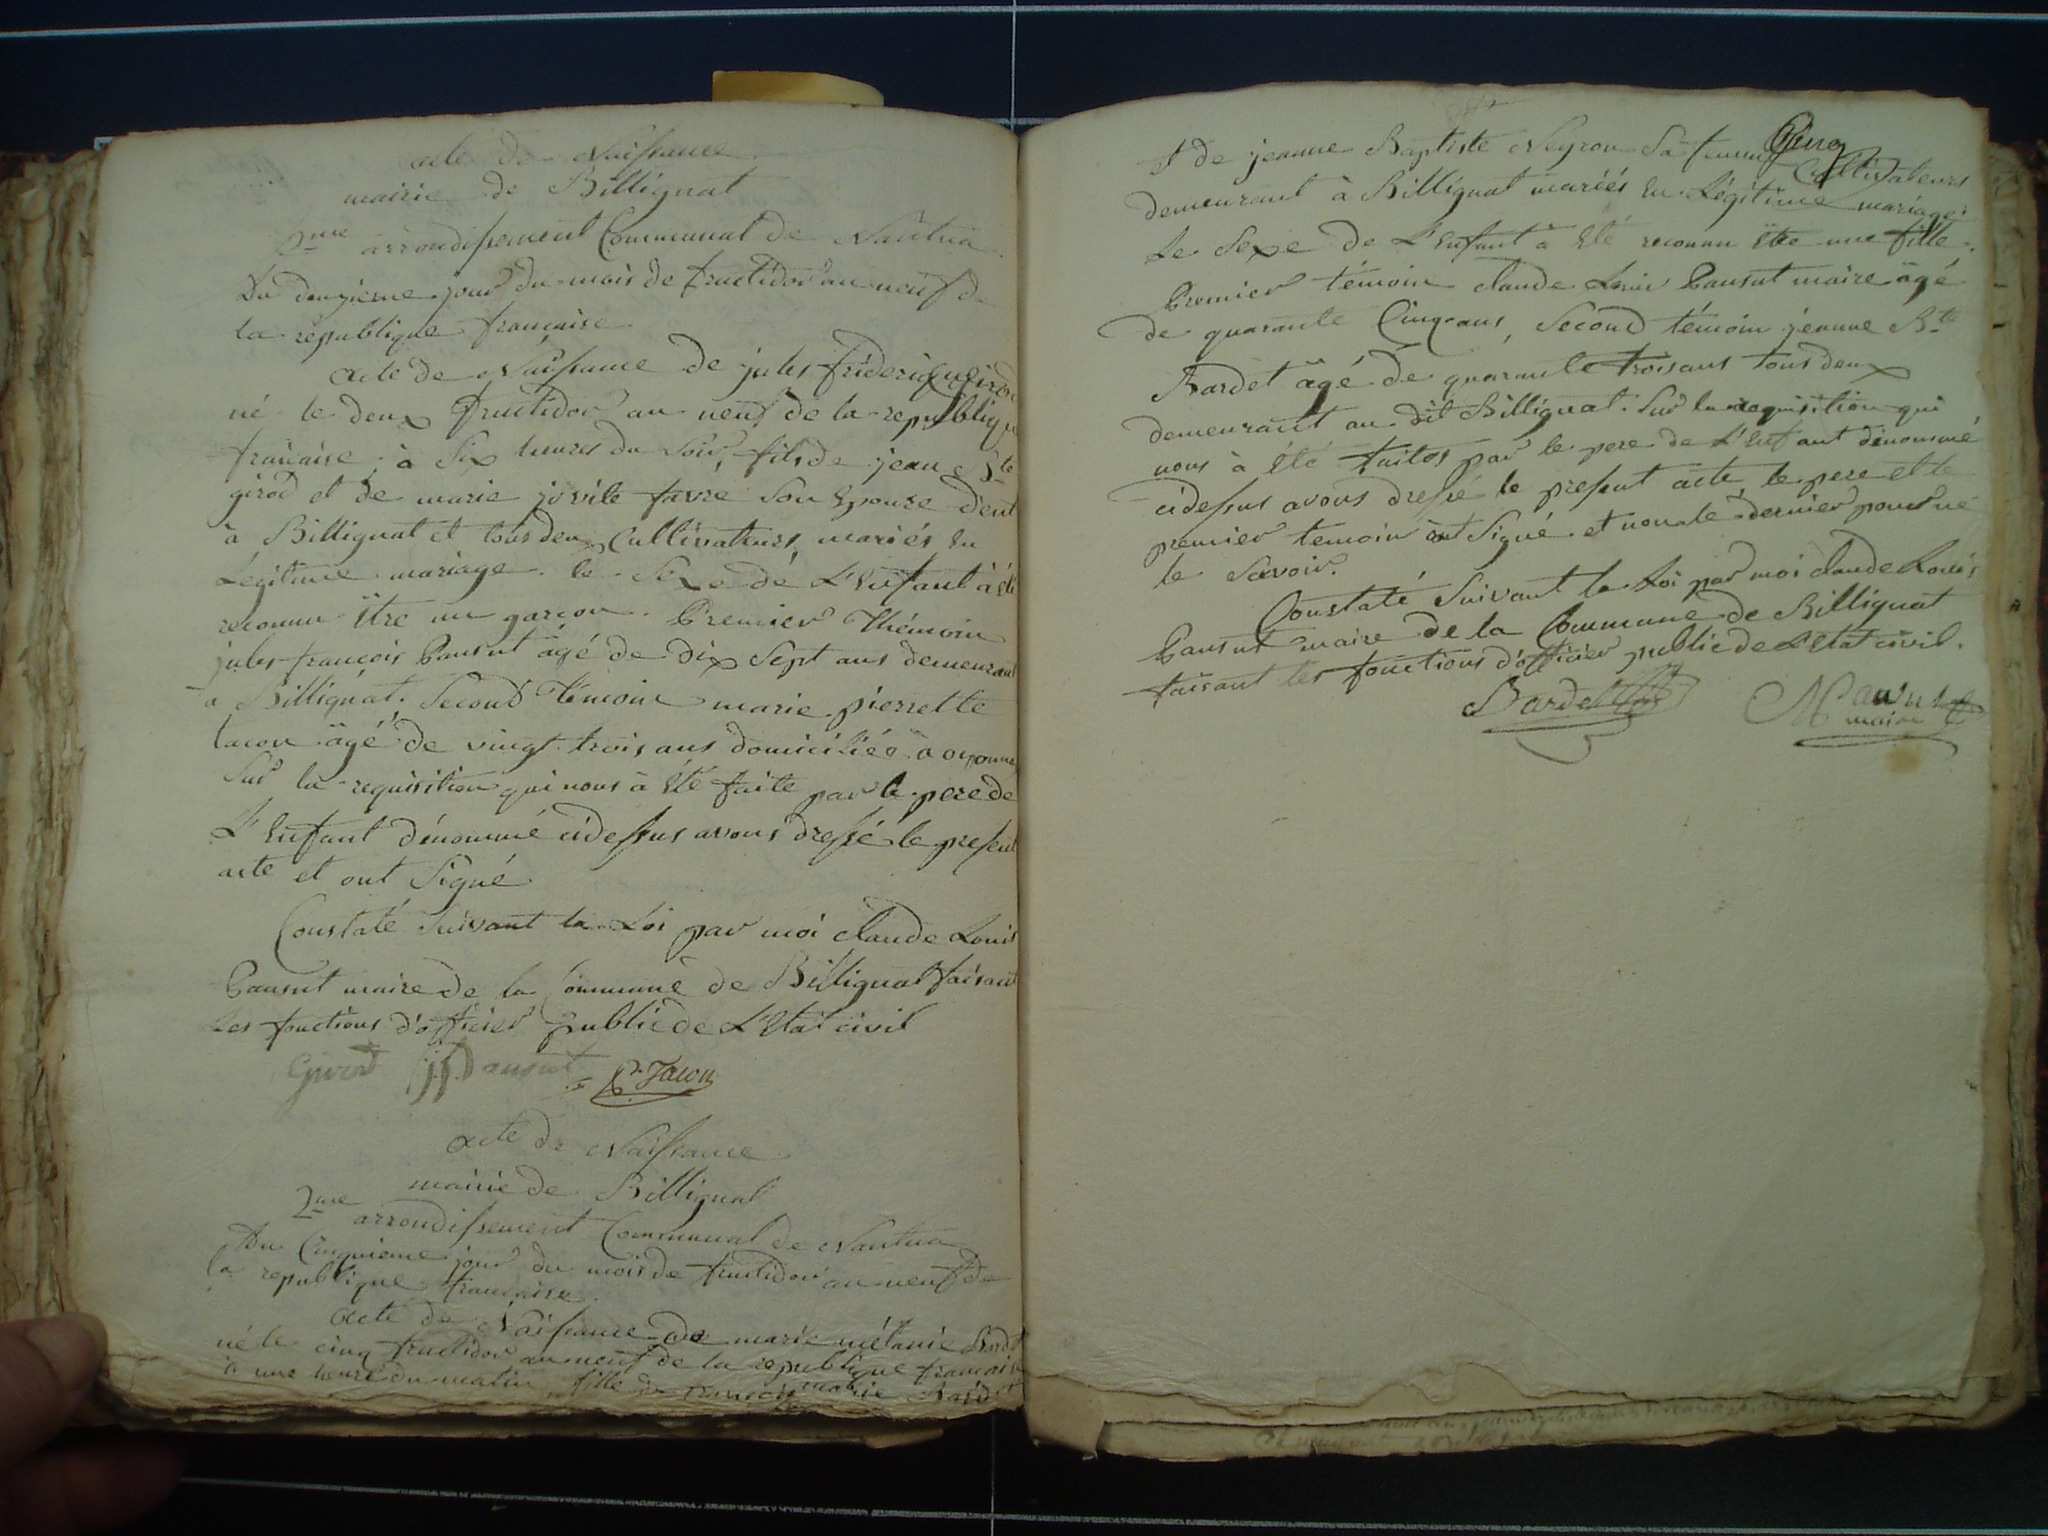 acte de Naissance
mairie de Billignat
2me arrondissement Communal de Nantua
Du deuxieme jour du mois de fructidor an neuf de
la republique francaise.
acte de Naissance de jules frideric girod
né le deux fructidor an neuf de la republique
francaise, à Six heures du Soir, fils de jean Bte
girod et de marie jovite favre Son Epouse dent
à Billignat et tous deux Cultivateurs, mariés En
Légitime mariage. le Sexe dé L'Enfant à été
reconnu Etre un garçon. Premier Thémoin
jules françois Pansut âgé de dix Sept ans demeurant
à Billignat. Second Témoin marie pierrette
tacon âgé de vingt trois ans domiciliée à oyonnax
Sur la requisition qui nous à Eté faite par le pere de
L'Enfant dénommé cidessus avons dressé le present
acte et ont Signé
Constaté Suivant la Loi par moi claude Louis
Pansut maire de la Commune de Billignat faisant
Les fonctions d'officier public de L'Etat civil
Girod Pansut Tacon
acte de Naissance
mairie de Billignat
2me arrondissement Communal de Nantua
Du Cinquieme jour du mois de fructidor an neuf de
la republique francaise.
Acte de Naissance de marie mélanie Bardet
né le cinq fructidor an neuf de la republique francaise
à une heure du matin fille de marie Bardet
Et de jeanne Baptiste Neyron Sa femme Cultivateurs
demeurant à Billignat mariés En Légitime mariage.
Le Sexe de L'Enfant à Eté reconnu Etre une fille.
Premier témoin claude Louis Pansut maire âgé
de quarante Cinq ans, Second témoin jeanne Bte
Bardet âgé de quarante trois ans tous deux
demeurant au dit Billignat. Sur la requisition qui
nous à Eté faites par le pere de L'Enfant dénommé
cidessus avons dressé le present acte le pere et le
premier temoin ont Signé et non le dernier pour ne
le Savoir.
Constaté Suivant la Loi par moi claude Louis
Pansut maire de la Commune de Billignat
faisant les fonctions d'officier public de L'Etat civil.
Bardet Pansut
maire